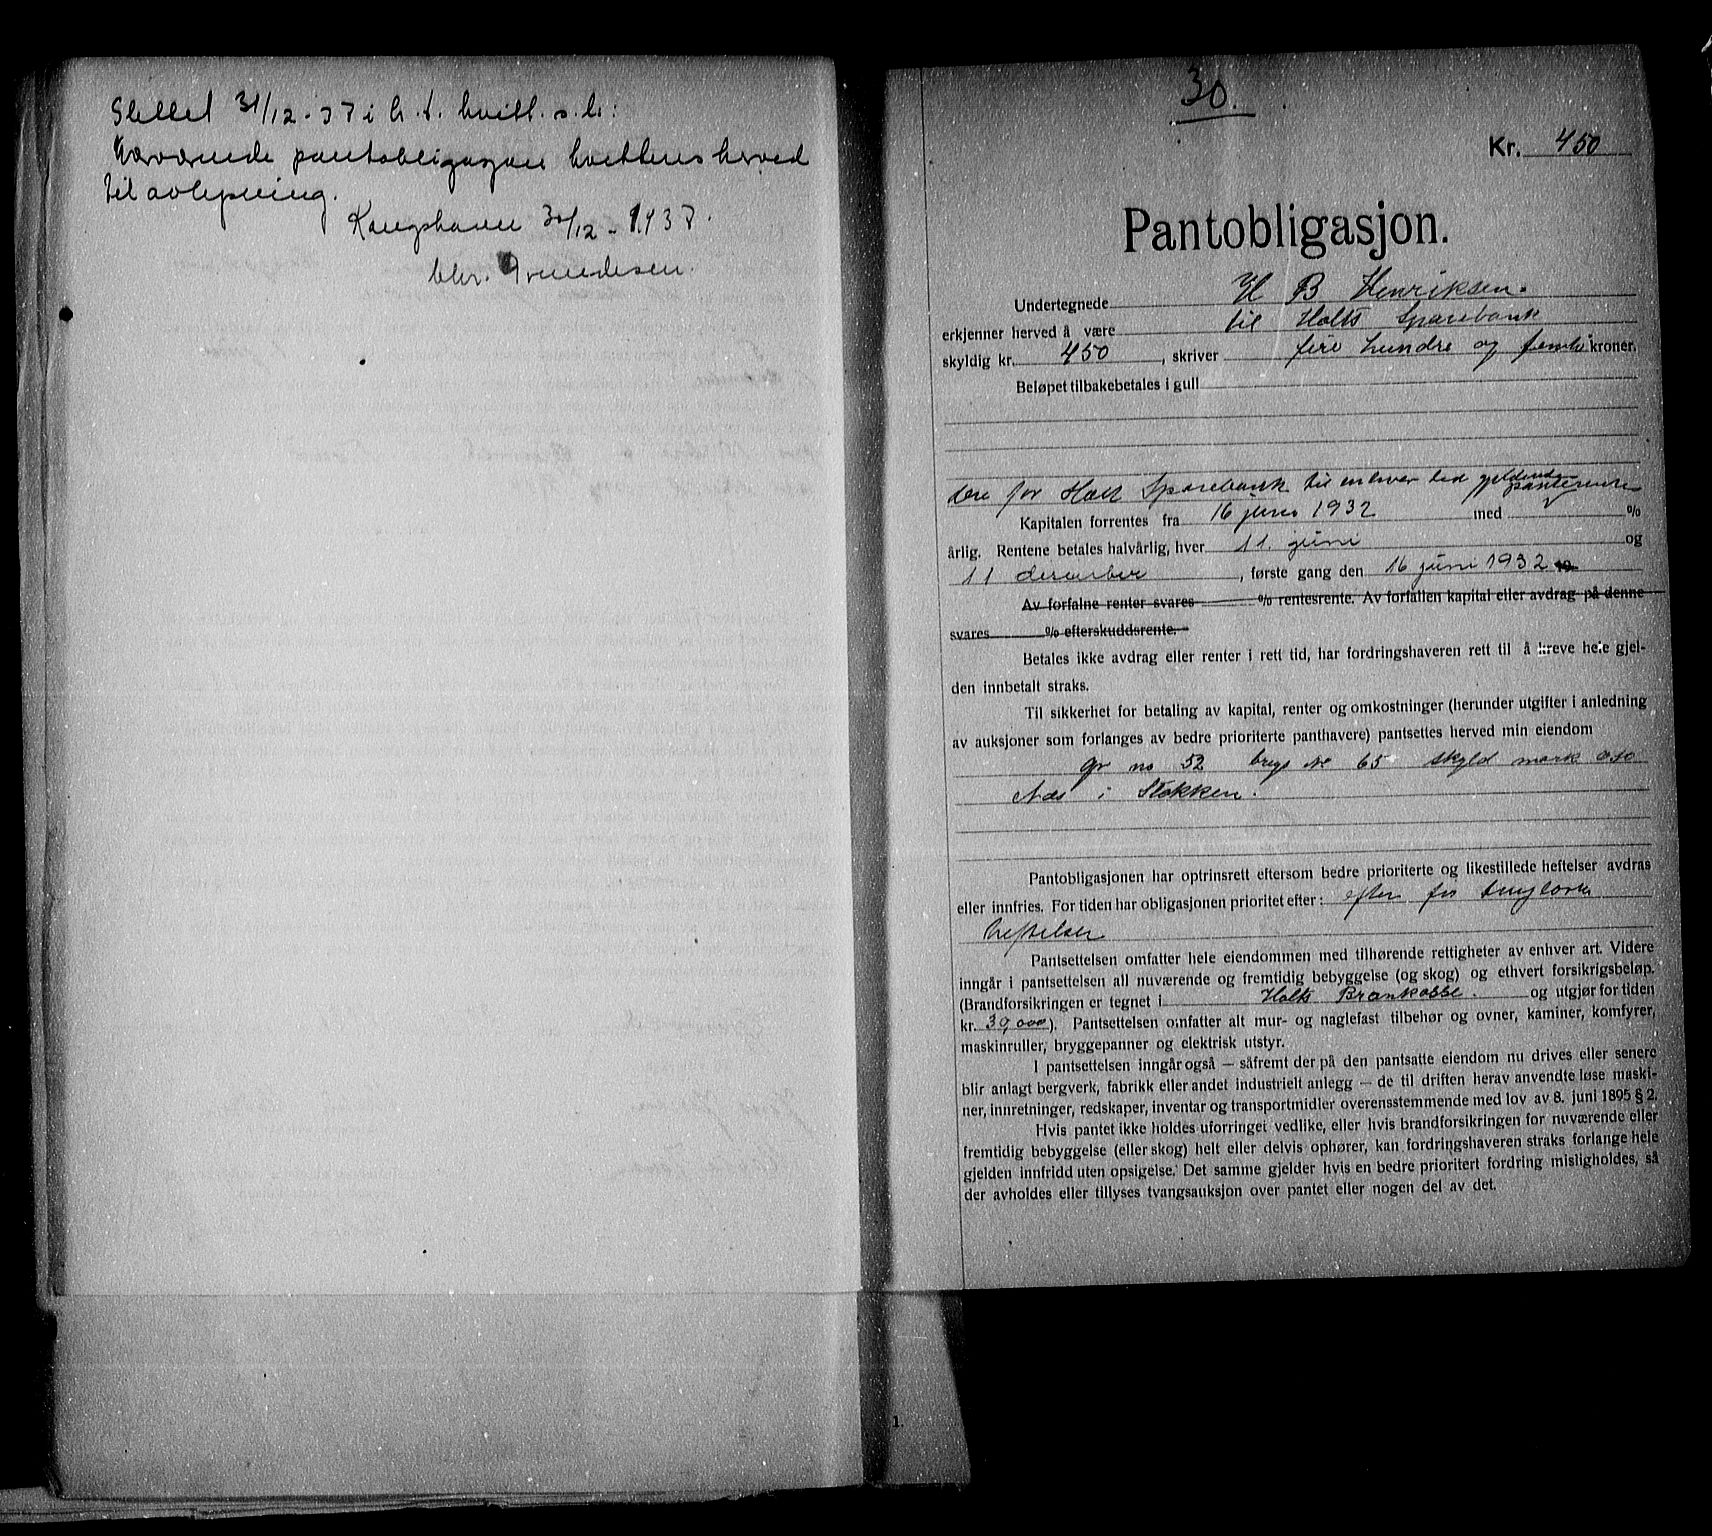 Slettet 31/12-37 i h. t. kvitt. s. l.:
Nærværende pantobligasjon kvitteres herved
til avlysning.
Kongshavn 30/12-1937.
Chr.
30.
Kr. 450
Pantobligasjon.
Undertegnede H B Henriksen.
erkjenner herved å være til Holts Sparebank
skyldig kr. 450, skriver fire hundre og femti kroner.
Beløpet tilbakebetales i gull
den for Holt Sparebank til enhver tid gjeldende
panterente
Kapitalen forrentes fra 16 juni 1932 med %
årlig. Rentene betales halvårlig, hver 11. juni og
11 desember, første gang den 16 juni 1932 19
Av forfalne renter svares % rentesrente. Av forfallen kapital eller avdrag på denne
svares % efterskuddsrente.
Betales ikke avdrag eller renter i rett tid, har fordringshaveren rett til å kreve hele gjel-
den innbetalt straks.
Til sikkerhet for betaling av kapital, renter og omkostninger (herunder utgifter i anledning
av auksjoner som forlanges av bedre prioriterte panthavere) pantsettes herved min eiendom
gr no 52 brugs No 65 skyld mark 0 50
Næs i Stokken.
Pantobligasjonen har optrinsrett eftersom bedre prioriterte og likestillede heftelser avdras
eller innfries. For tiden har obligasjonen prioritet efter: efter før tinglæste
heftelser
Pantsettelsen omfatter hele eiendommen med tilhørende rettigheter av enhver art. Videre
inngår i pantsettelsen all nuværende og fremtidig bebyggelse (og skog) og ethvert forsikrigsbeløp.
(Brandforsikringen er tegnet i Holts Brankasse. og utgjør for tiden
kr. 39,000). Pantsettelsen omfatter alt mur- og naglefast tilbehør og ovner, kaminer, komfyrer,
maskinruller, bryggepanner og elektrisk utstyr.
I pantsettelsen inngår også — såfremt der på den pantsatte eiendom nu drives eller senere
blir anlagt bergverk, fabrikk eller andet industrielt anlegg — de til driften herav anvendte løse maski-
ner, innretninger, redskaper, inventar og transportmidler overensstemmende med lov av 8. juni 1895 § 2.
Hvis pantet ikke holdes uforringet vedlike, eller hvis brandforsikringen for nuværende eller
fremtidig bebyggelse (eller skog) helt eller delvis ophører, kan fordringshaveren straks forlange hele
gjelden innfridd uten opsigelse. Det samme gjelder hvis en bedre prioritert fordring misligholdes, så
der avholdes eller tillyses tvangsauksjon over pantet eller nogen del av det.
1.